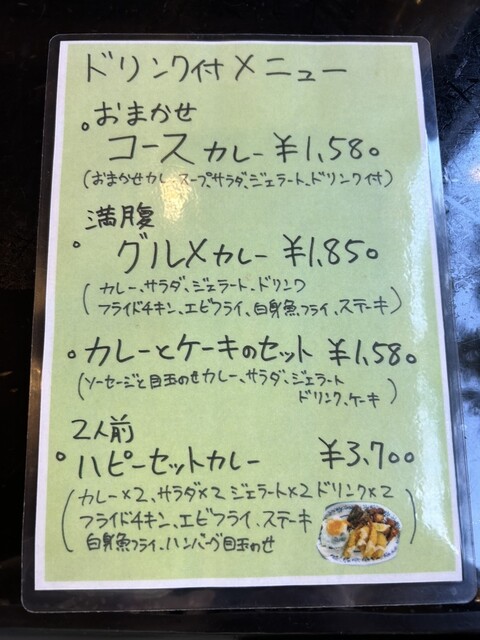 ドリンク付メニュー
。おまかせ
コースカレー ¥1,580
(おまかせカレースープ、サラダ、ジェラート、ドリンク付)
満腹
。グルメカレー ¥1,850
(カレー、サラダ、ジェラート、ドリンク
フライドチキン、エビフライ、白身魚フライ、ステーキ)
。カレーとケーキのセット ¥1,580
(ソーセージと目玉のせカレー、サラダ、ジェラート
ドリンク、ケーキ)
2人前
。ハピーセットカレー ¥3,700
(カレー×2、サラダ×2 ジェラート×2 ドリンク×2
フライドチキン、エビフライ、ステーキ
白身魚フライ、ハンバーグ目玉のせ)